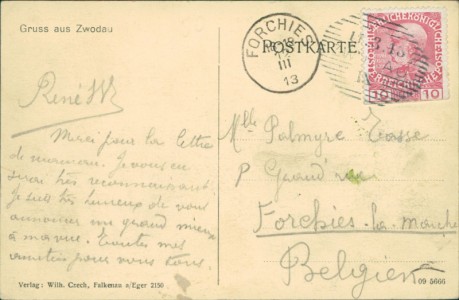 Gruss aus Zwodau
FORCHIES
12
III
13
POSTKARTE.
10 10
René
Merci pour la lettre
de maman. Je vous en
suis très reconnaissant
Je suis très heureux de vous
annoncer un grand mieux
à maman. Toutes mes
pour vous tous.
Mlle Palmyre Tasse
Grand' rue
Forchies-la-marche
Belgien
Verlag: Wilh. Czeck, Falkenau a/Eger 2150
09 5666